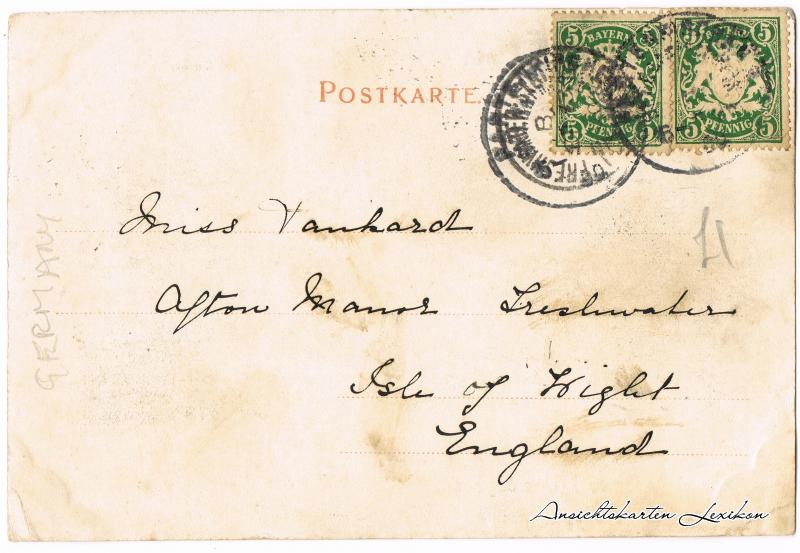 5 BAYERN 5
5 PFENNIG 5
BAYERN 5
5 PFENNIG 5
POSTKARTE.
Miss Tankard
Afton Manor Freshwater
Isle of Wight
England
GERMANY
Ansichtskarten Lexikon